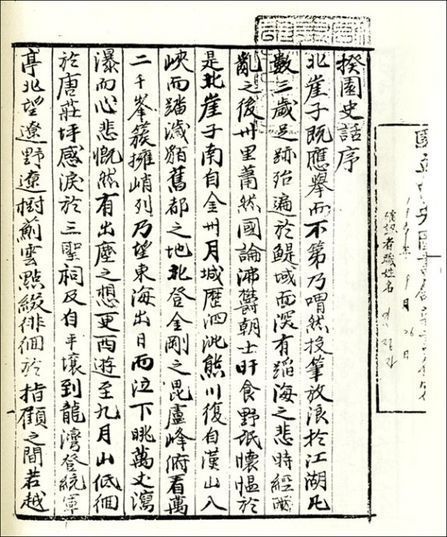 揆園史話序
北崖子既應擧而不第乃喟然投筆放浪於江湖凡
數三歲足跡殆遍於鯷域而深有蹈海之悲時經酷
亂之後州里蕭然國論沸鬱朝士旰食野氓懷慍於
是北崖子南自金州月城歷泗沘熊川復自漢山入
峽而踏濊貊舊都之地北登金剛之毘盧峰俯看萬
二千峯簇擁峭列乃望東海出日而泣下眺萬丈瀉
瀑而心悲慨然有出塵之想更西遊至九月山低佪
於唐莊坪感淚於三聖祠及自平壤到龍灣登統軍
亭北望遼野遼樹薊雲點綴俳佪於指顧之間若越